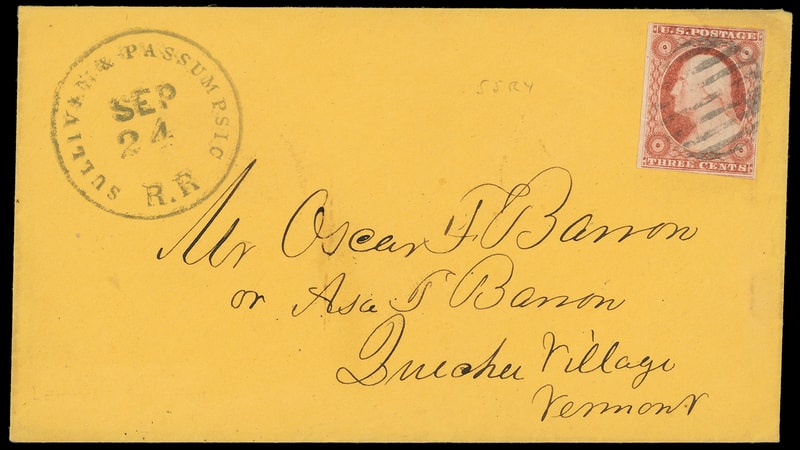 SULLIVAN & PASSUMPSIC
SEP
24
R.R
U.S. POSTAGE
THREE CENTS
55R4
Mr Oscar F Barron
or Asa T Barron
Quechee Village
Vermont